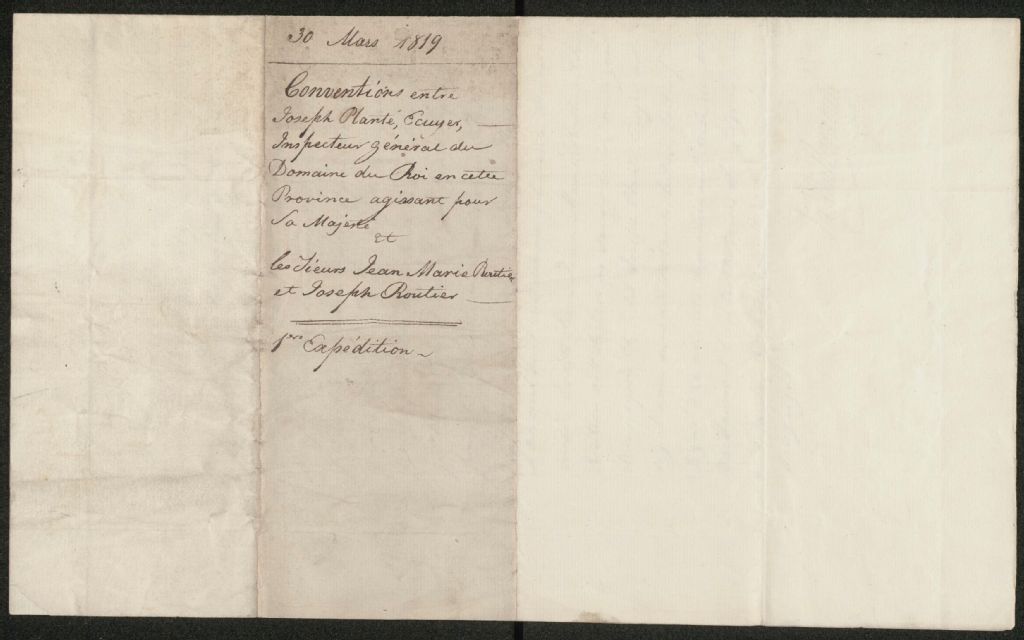 30 Mars 1819
Conventions entre
Joseph Planté, Ecuyer,
Inspecteur général du
Domaine du Roi en cette
Province agissant pour
Sa Majesté
et
les Sieurs Jean Marie Routier
et Joseph Routier
1ere Expédition